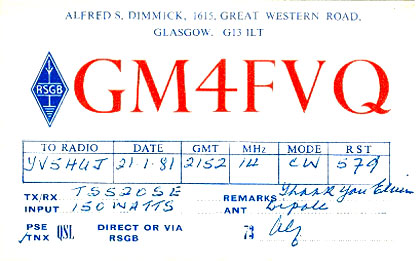 ALFRED S, DIMMICK, 1615, GREAT WESTERN ROAD,
GLASGOW, G13 1LT
RSGB
GM4FVQ
TO RADIO DATE GMT MHz MODE RST
YV5HUJ 21.1.81 2152 14 CW 579
TX/RX TS520SE REMARKS Thank You
INPUT 150 WATTS ANT Dipole
PSE QSL DIRECT OR VIA 73 Alf
TNX RSGB